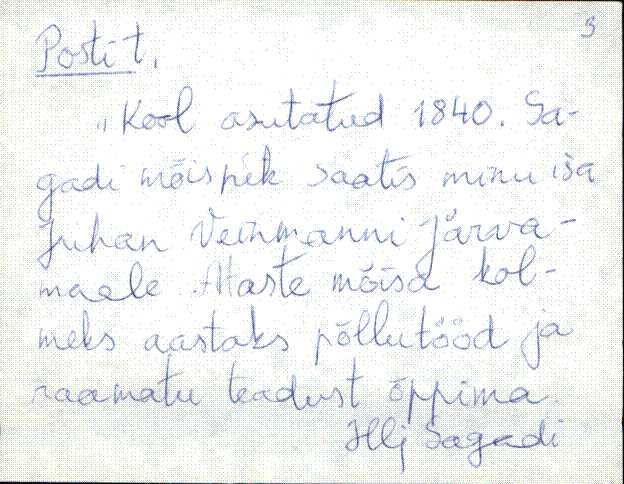 3
Posti t.
"Kool asutatud 1840. Sa-
gadi mõisnik saatis minu isa
Juhan Veinmanni Järva-
maale Ataste mõisa kol-
meks aastaks põllutööd ja
raamatu teadust õppima.
Hlj Sagadi